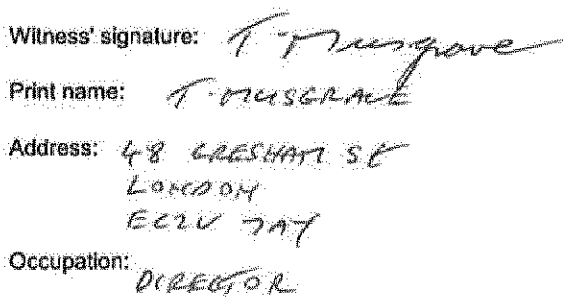 Witness' signature: T Musgrave
Print name: T. MUSGRAVE
Address: 48 GRESHAM ST
LONDON
EC2V 7AY
Occupation: DIRECTOR